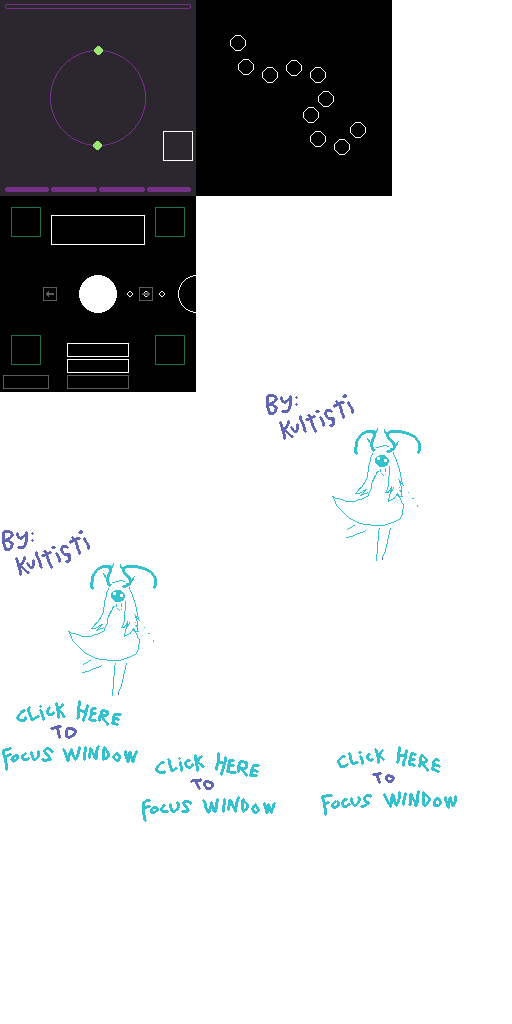 By:
Kultisti
By:
Kultisti
CLiCK HERE
TO
FOCUS WINDOW
CLiCK HERE
TO
FOCUS WINDOW
CLiCK HERE
TO
FOCUS WINDOW